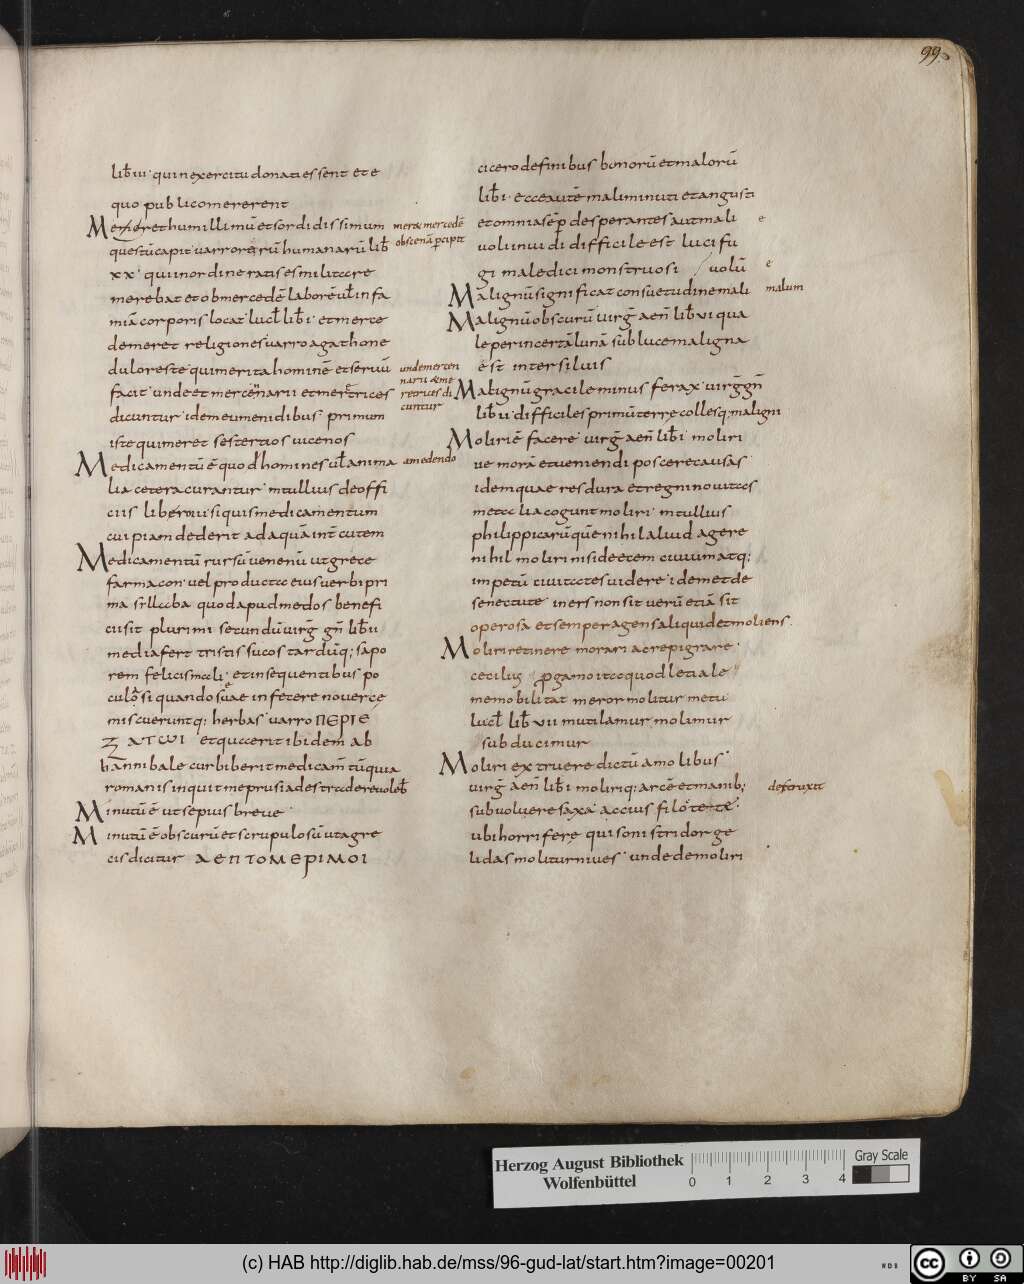 99
lib̄ iii· qui in exercitu donati essent et e
quo publico mererent
Mererethumillimū et sordidissimum
questū capit· varro rerū humanarū lib̄
xx· qui in ordine ratis es militare
merebat et ob mercedē laborē ul̄ infa
miā corporis locat· lucl̄ lib̄ i· et merce
de meret religiones varro agathone
dulореste qui merita hominē et seruū
facit· unde et mercēnarii et meretrices
dicuntur· idem eumenidibus· primum
iste qui meret sestertios uicenos
Medicamentū ē quod homines ul̄ anima
lia cetera curantur· m tullius de offi
ciis libro iii si quis medicamentum
cuipiam dederit ad aquā int̄ cutem
Medicamentū rursū uenenū ut grece
farmacon· uel producta eius uerbi pri
ma syllaba quod apud medos benefi
cii sit plurimi secundū virḡ gn̄ lib̄ ii
media fert tristis sucos tardūq; sapo
rem felicis mali· et in sequentibus po
culą si quando suae infecere nouerce
miscueruntq; herbas· varro ΠΕΡΙΕ
ΖΑΤωΙ et quaerit ibidem ab
hannibale cur biberit medicam̄tū quia
romanis inquit me prusiades tradere uoleb̄
Minutū ē ut sepius breue·
Minutū ē obscurū et scrupulosū ut a gre
cis dicitur ΛΕΠΤΟΜΕΡΙΜΟΙ
merax mercedē
obscenā pcipit
unde mercen
narii & me
retrices di
cuntur
a medendo
cicero de finibus bonorū et malorū
lib̄ i· ecce autē mali minuti et angusti
et omnia sēp desperantes aut mali
uoli inuidi difficile est lucifu
gi maledici monstruosi / uolū
Malignū significat consuetudine mali
Malignū obscurū virḡ aen̄ lib̄ vi qua
le per incertā lunā sūb luce maligna
ēst inter siluis
Malignū gracile minus ferax· virḡ gn̄
lib̄ ii· difficiles primū terre collesq; maligni
Molirē facere· virḡ aen̄ lib̄ i· moliri
ue morā et ueniendi poscere causas
idem quae res dura et regni nouitas
me talia cogunt moliri· m tullius
philippicarū quē nihil aliud agere
nihil moliri nisi de etem ciuiumatq;
impetū ciuitates uidere· idem et de
senectute iners non sit uerū etiā sit
operosa et semper agens aliquid et moliens
Moliri retinere morari ac repigrare·
cecilius pgamo ita quod letiale
me mobilitat meror molitur metu
lucl̄ lib̄ vii mutilamur molimur
subducimur
Moliri extruere dictū a molibus
virḡ aen̄ lib̄ i· moliriq; arcē et manib;
subuoluere saxa· accius filotete·
ubi horrifere qui soni stridor ge
lidas molitur niues· unde demoliri
e
e
malum
destruxit
Herzog August Bibliothek
Wolfenbüttel
0 1 2 3 4
Gray Scale
(c) HAB http://diglib.hab.de/mss/96-gud-lat/start.htm?image=00201
WDB
cc BY SA